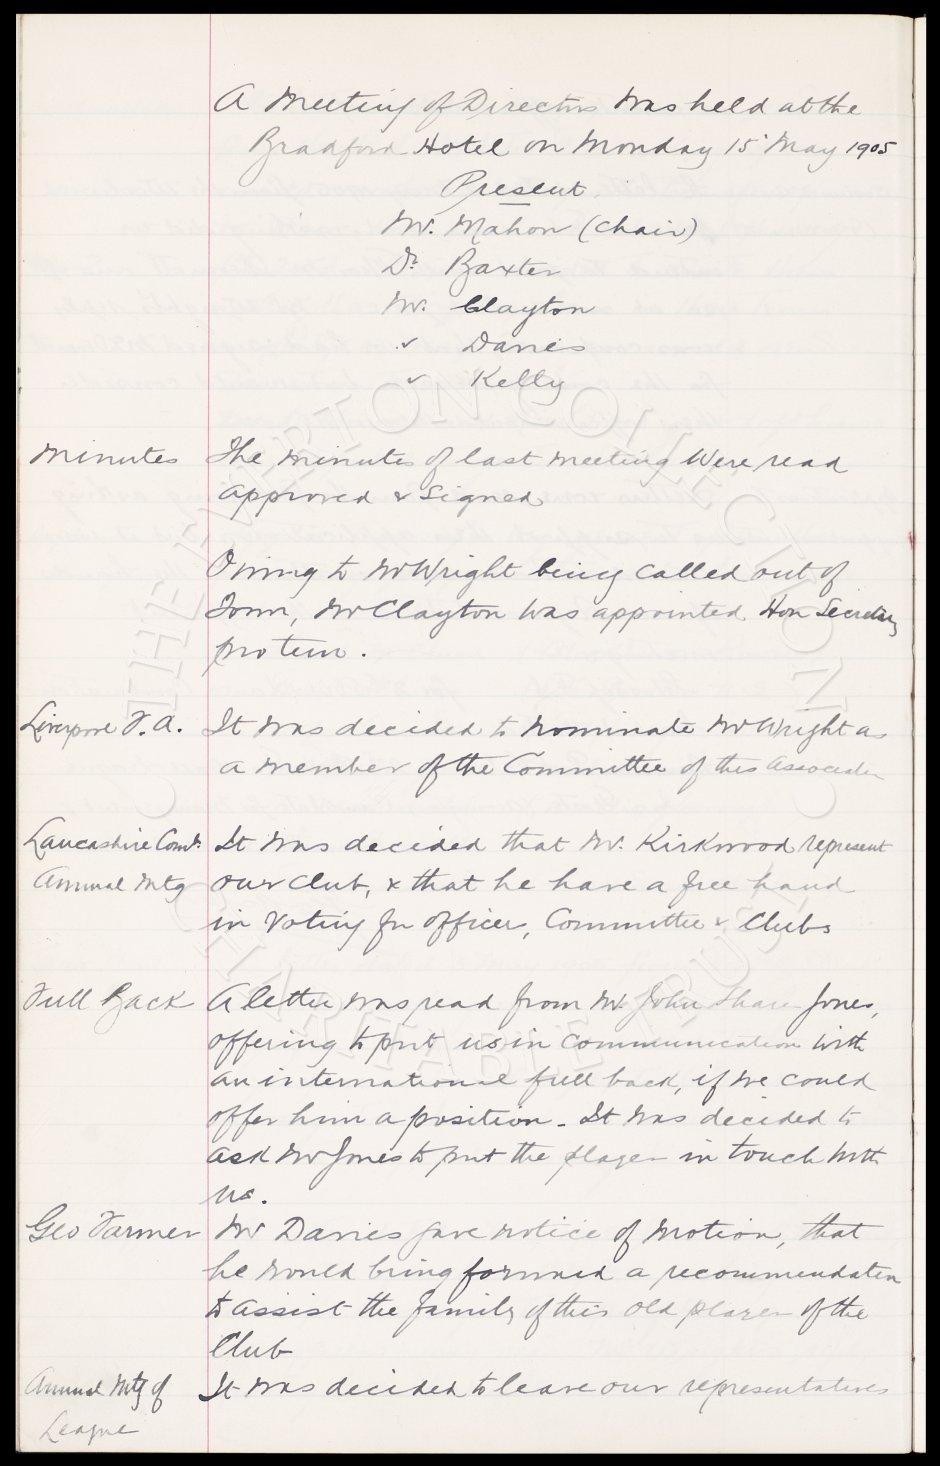 A Meeting of Directors was held at the
Bradford Hotel on Monday 15 May 1905
Present
Mr. Mahon (Chair)
Dr Baxter
Mr. Clayton
" Davies
" Kelly
Minutes The minutes of last meeting were read
approved & signed
Owing to Mr Wright being called out of
Town, Mr Clayton was appointed Hon Secretary
pro tem.
Liverpool F.A. It was decided to nominate Mr Wright as
a member of the Committee of this Association
Lancashire Comb. It was decided that Mr. Kirkwood represent
Annual Mtg our club, & that he have a free hand
in voting for officers, Committee & Clubs
Full Back A letter was read from Mr John Share Jones,
offering to put us in communication with
an international full back, if we could
offer him a position - It was decided to
ask Mr Jones to put the player in touch with
us.
Geo Farmer Mr Davies gave notice of motion, that
he would bring forward a recommendation
to assist the family of this old player of the
Club
Annual Mtg of It was decided to leave our representatives
League
THE EVERTON COLLECTION
CHARITABLE TRUST